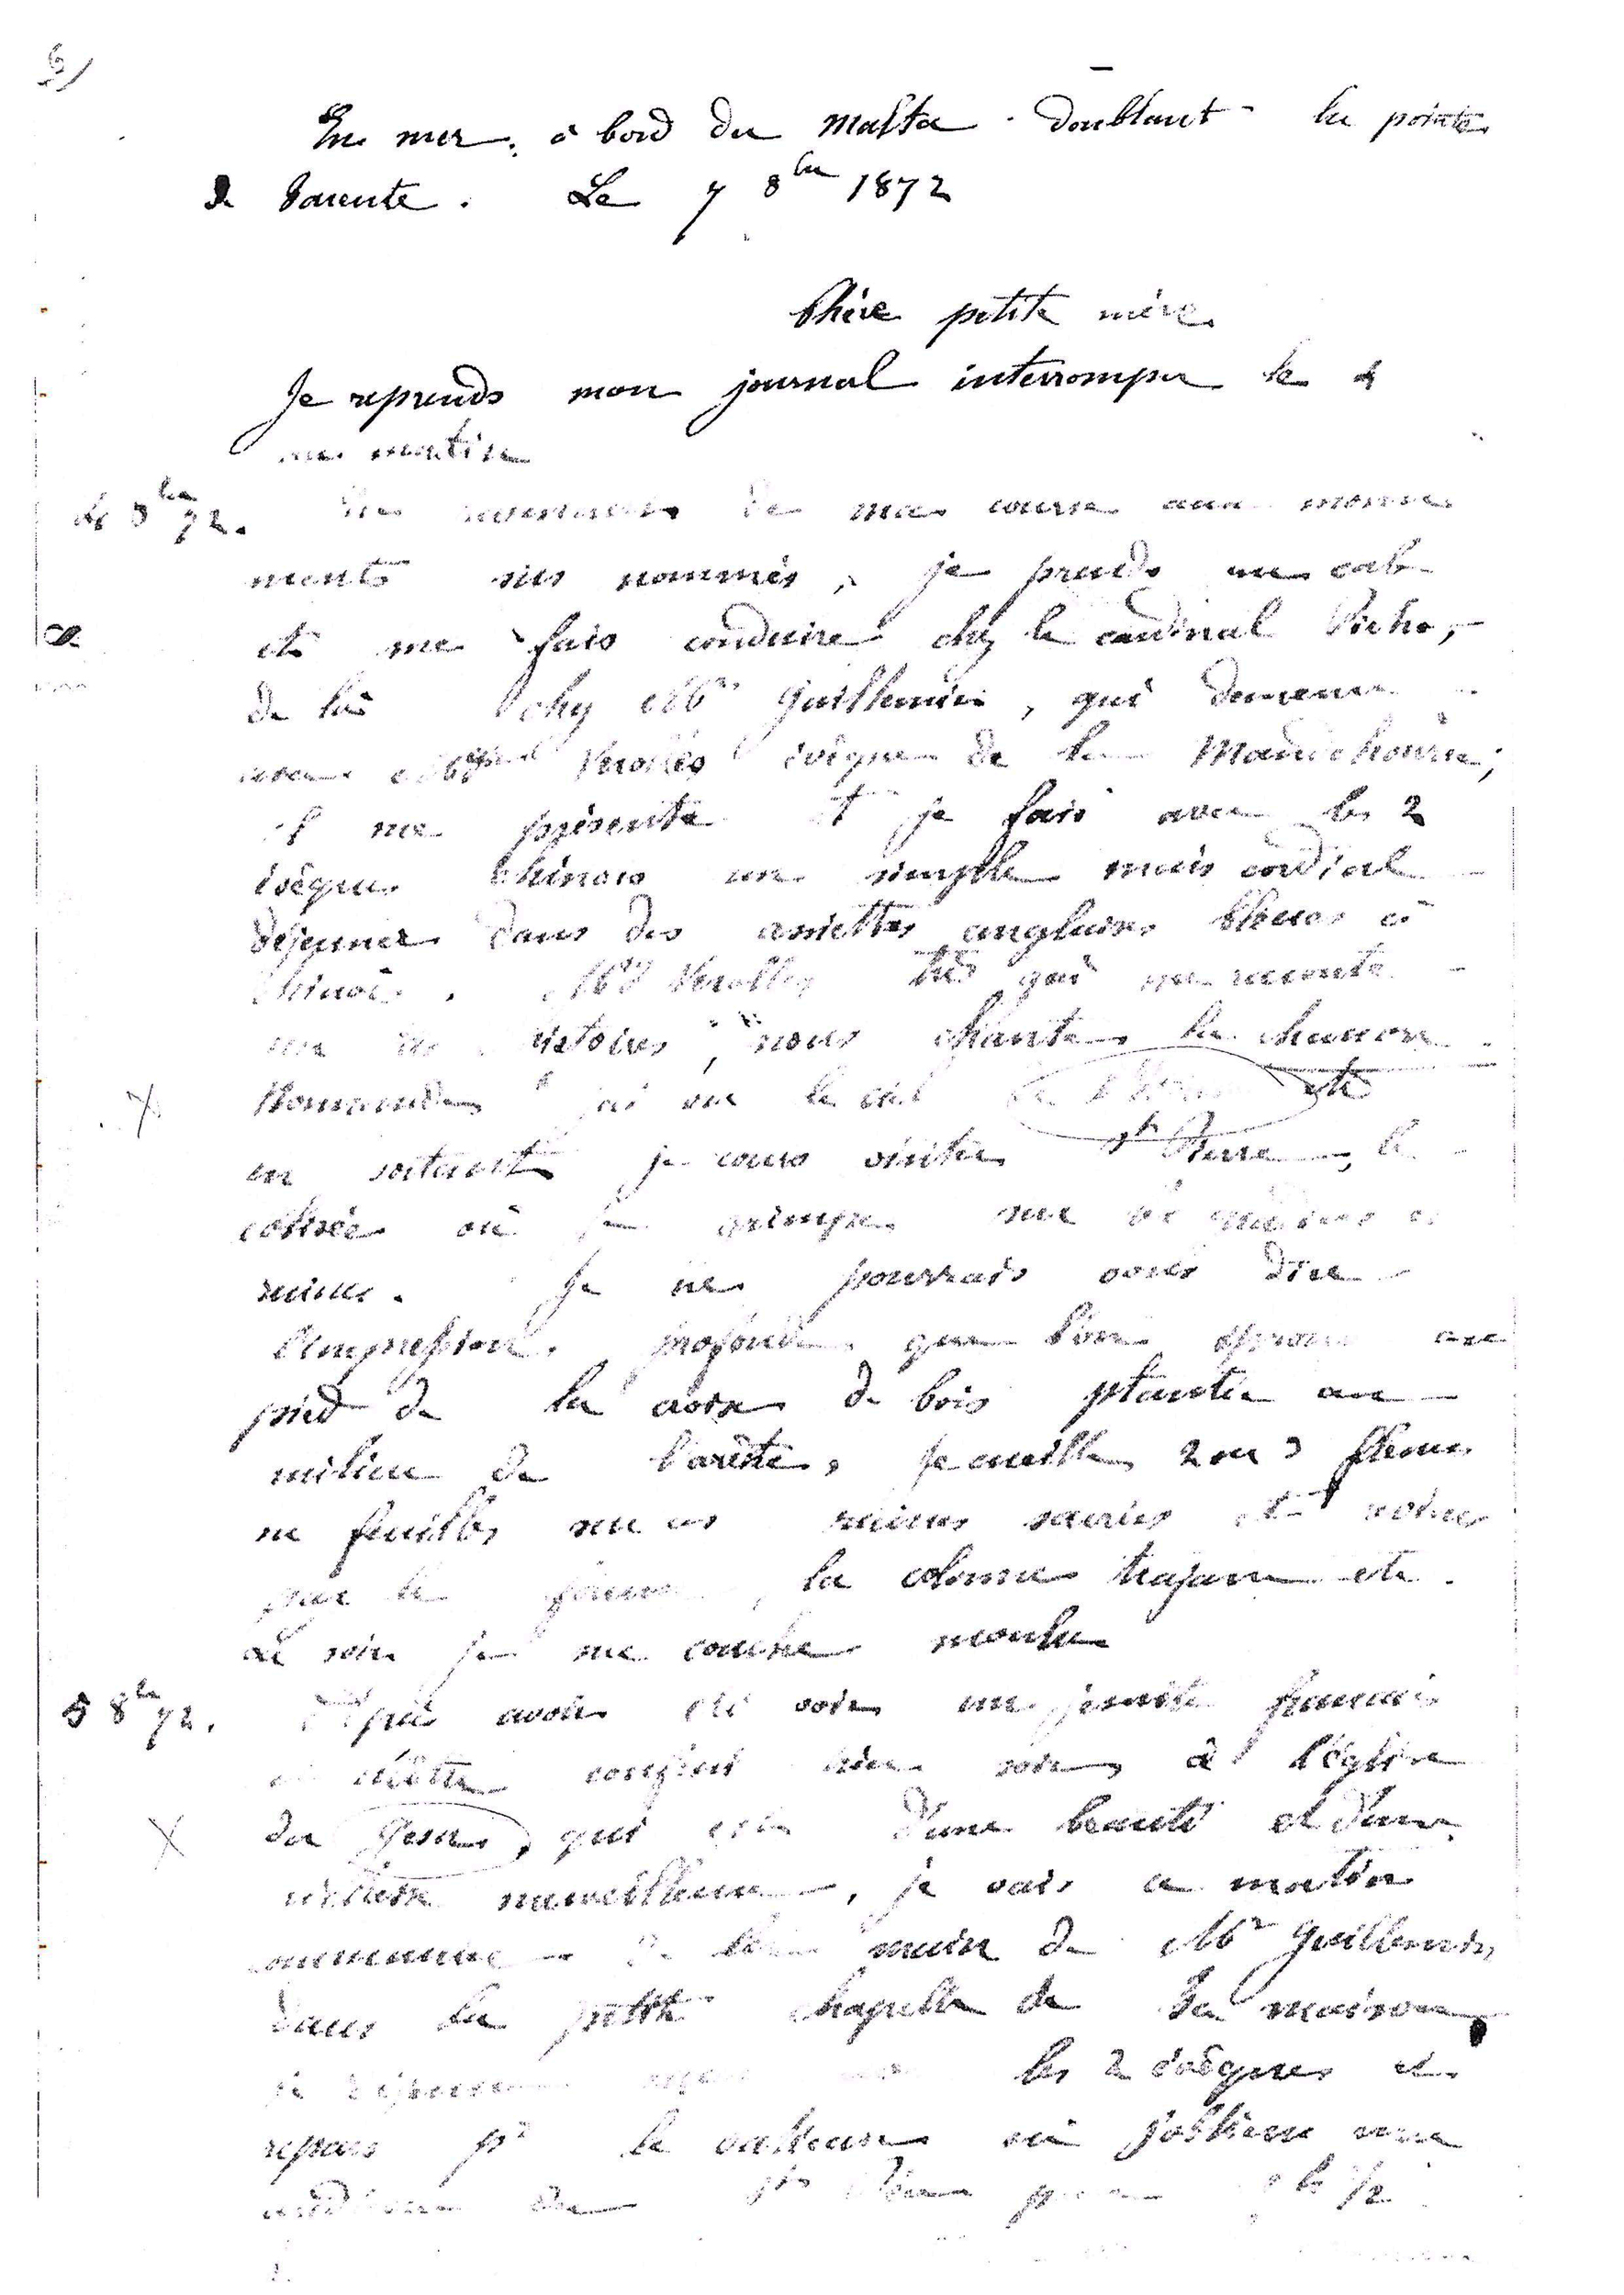 6)
En mer, à bord du Malta doublant la pointe
de Tarente. Le 7 8bre 1872
Chère petite mère
Je reprends mon journal interrompu le 4
au matin
4 8bre 72. En revenant de ma course aux monu
ments sus nommés, je prends un cab
et me fais conduire chez le cardinal
de là chez Mgr Guillemin, qui demeure
avec Mgr Verolles évêque de la Mandchourie;
il me présente et je fais avec les 2
évêques chinois un simple mais cordial
déjeuner dans des assiettes anglaises bleues à
chinois. Mgr Verolles très gai me raconte
histoires, nous chante la chanson
Normande j'ai vu le ciel etc
en sortant je cours visiter St Pierre, le
colisée où je grimpe
ruines. Je ne pourrais vous dire
l'impression profonde que l'on éprouve au
pied de la croix de bois plantée au
milieu de l'arène, je cueille 2 ou 3 fleurs
ou feuilles sur ces ruines sacrées et reviens
par le forum, la colonne trajane etc.
Le soir je me couche moulu
5 8bre 72. Après avoir été voir un jesuite français
et m'être confessé hier soir à l'église
du Gesu, qui est d'une beauté et d'une
richesse merveilleuse, je vais ce matin
communier de la main de Mgr Guillemin
dans la petite chapelle de sa maison,
je déjeune avec les 2 évêques et
repars pr le vatican où j'obtiens une
audience du St Père pour 1/2